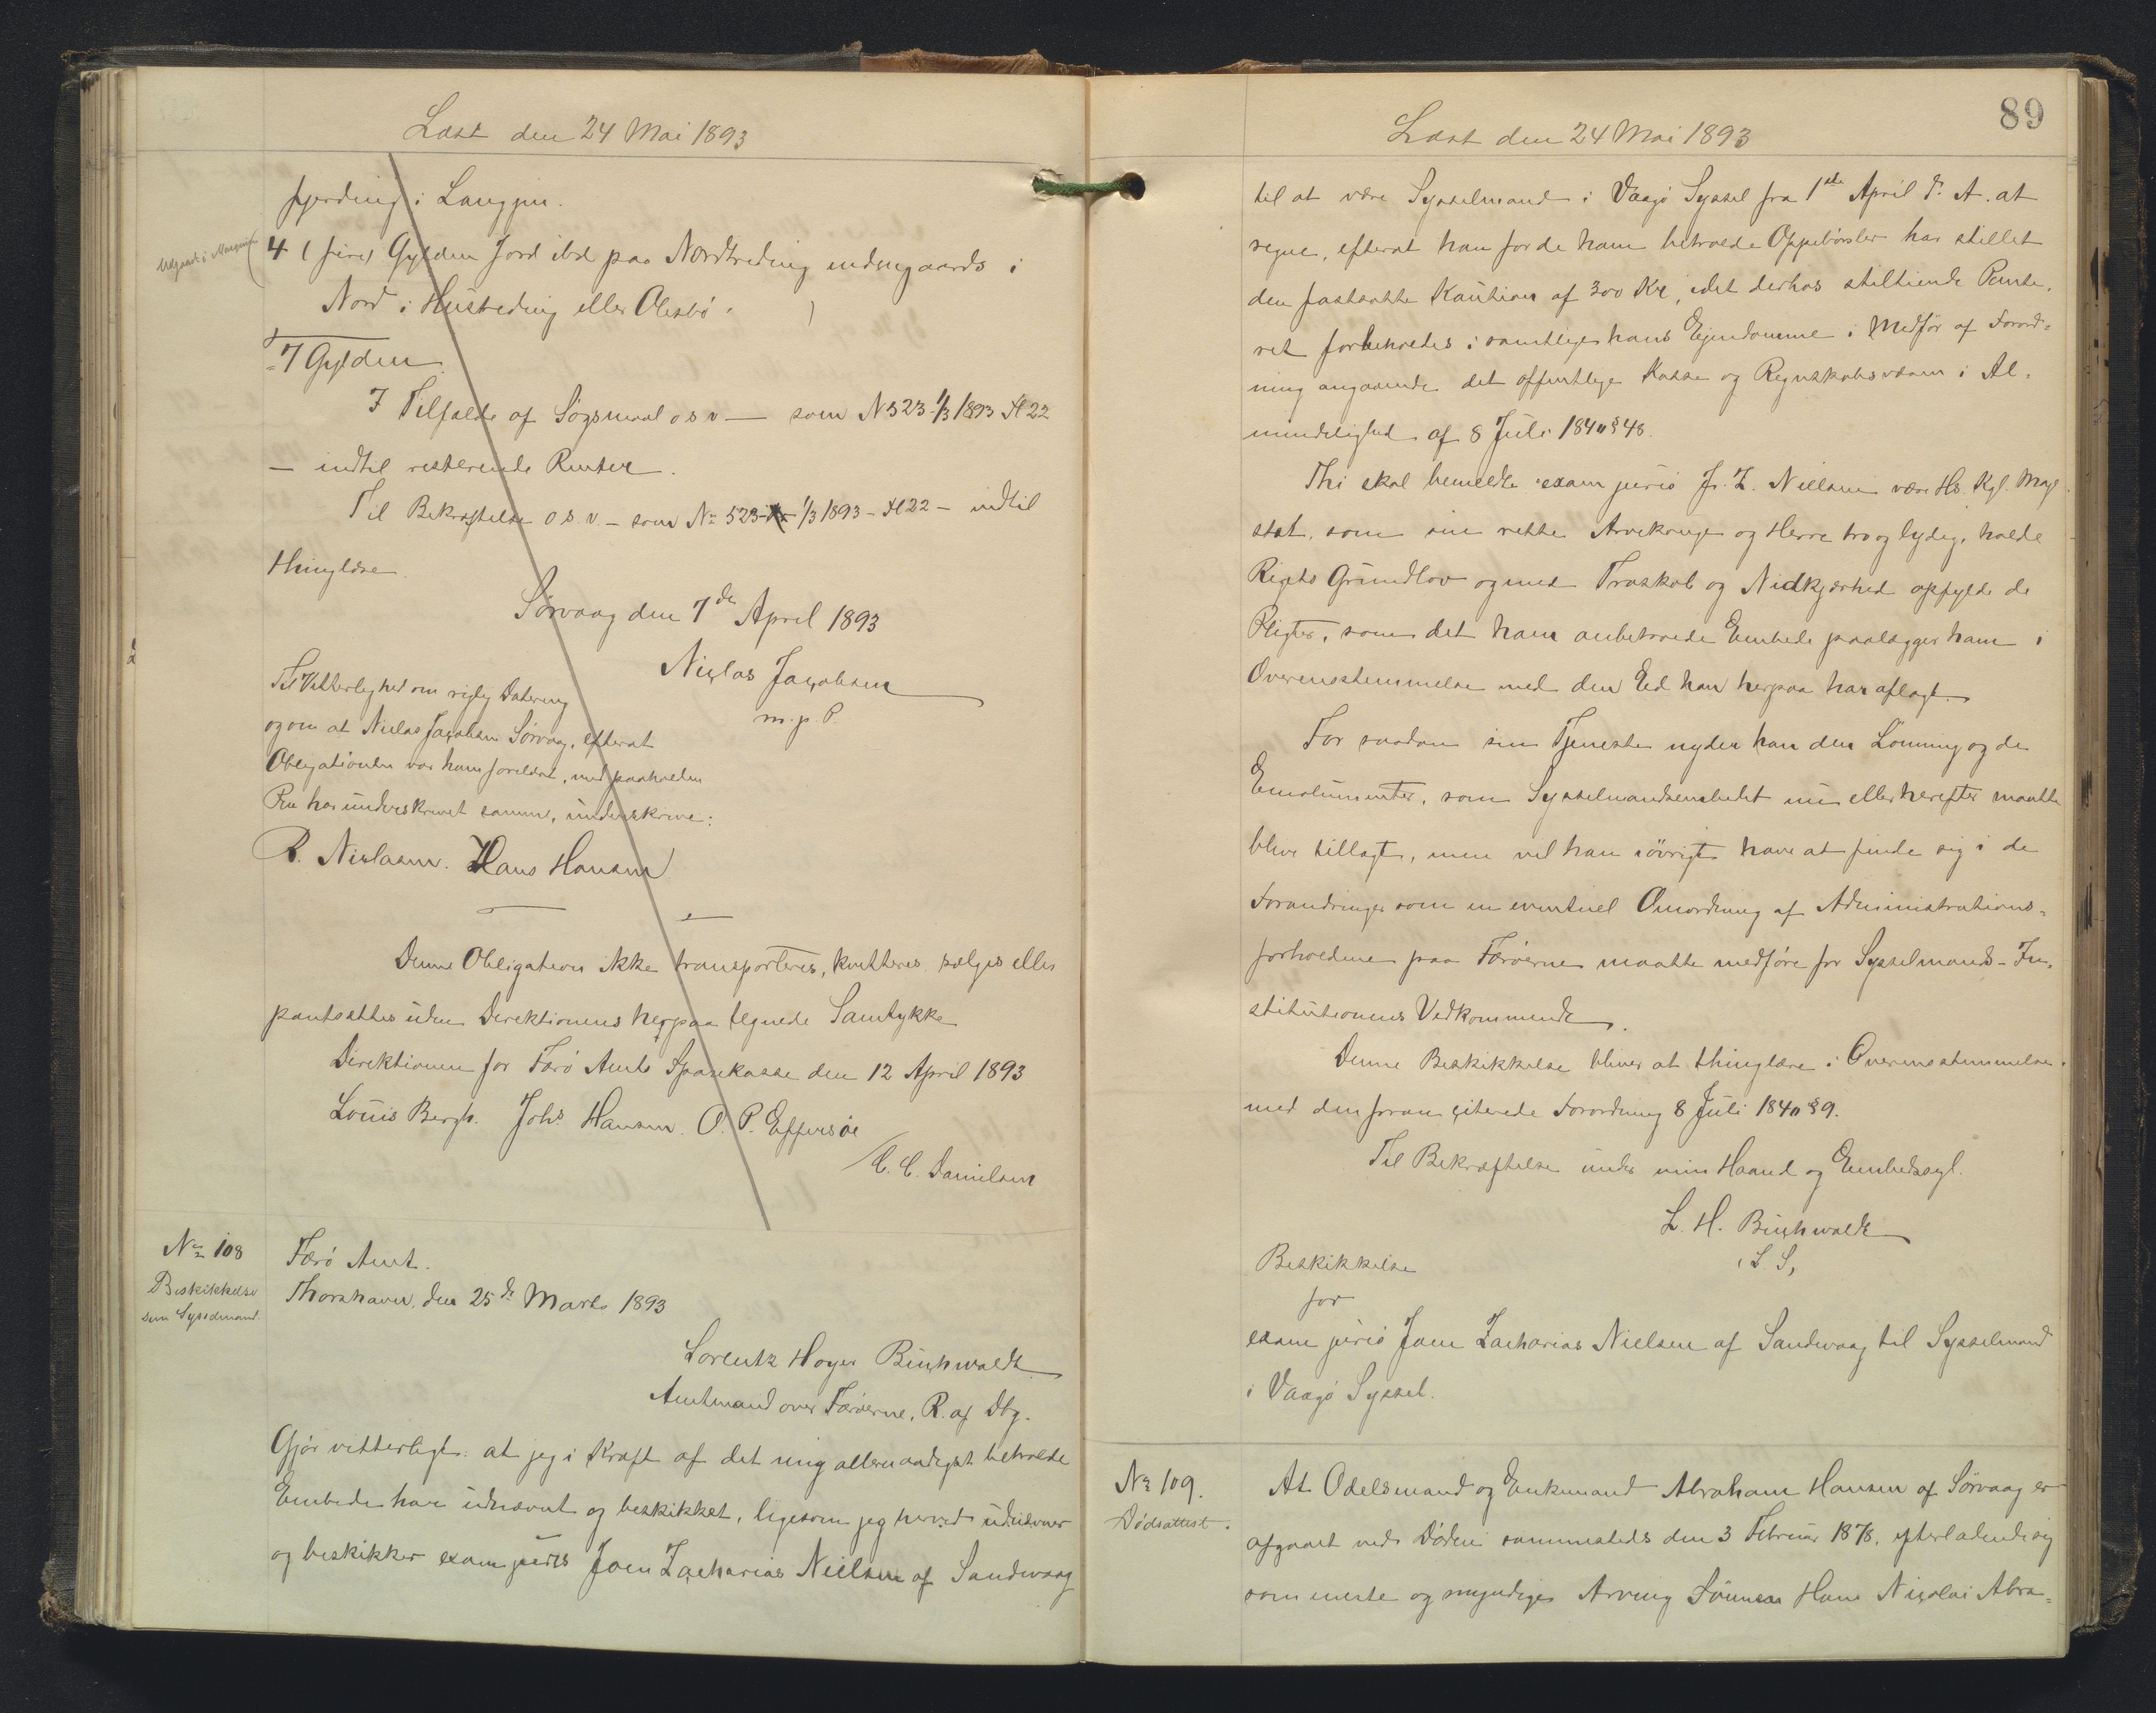 Læst den 24 Mai 1893
fjerding i Langgm.
4 (fire) Gylden Jord ibd paa Nordtreding indengaards i
Nord i Hustreding eller Olesbø.
7 Gylden
I Tilfælde af Søgsmaal o s v — som N 523 1/3 1893 Fl 22
— indtil resterende Renter.
Til Bekræftelse o. s. v. — som No 523 - 1/3 1893 - Fl 22 — indtil
thinglæse.
Sørvaag den 7de April 1893
Niclas Jacobsen
m. p. P.
Til Vitterlighed om rigtig Datering
og om at Niclas Jacobsen Sørvaag, efterat
Obligationen var ham forelæst, med paaholden
Pen har underskrevet samme, underskrive:
R. Niclasen. Hans Hansen
Denne Obligation ikke transporteres, kvitteres, sælges eller
pantsættes uden Direktionens herpaa tegnede Samtykke
Direktionen for Færø Amts Sparekasse den 12 April 1893
Louis Bergh. Johs Hansen. O. P. Effersøe
C. C. Danielsen
No 108
Beskikkelse
som Sysselmand.
Færø Amt.
Thorshavn, den 25de Marts 1893
Lorentz Høyer Buchwaldt
Amtmand over Færøerne, R. af Dbg.
Gjør vitterligt: at jeg i Kraft af det mig allernaadigst betroede
Embede har udnævnt og beskikket, ligesom jeg herved udnævner
og beskikker exam juris Joen Zacharias Nielsen af Sandvaag
89
Læst den 24 Mai 1893
til at være Sysselmand i Vaagø Syssel fra 1ste April d. A. at
regne, efterat han for de ham betroede Oppebørsler har stillet
den fastsatte Kaution af 300 Kr, idet derhos stiltiende Pante-
ret forbeholdes i samtlige hans Ejendomme i Medfør af Forord-
ning angaaende det offentlige Kasse og Regnskabsvæsen i Al-
mindelighed af 8 Juli 1840 § 48.
Thi skal bemeldte exam juris J. Z. Nielsen være Hs. Kgl. Maje
stæt, som sin rette Arvekonge og Herre tro og lydig, holde
Rigets Grundlov og med Troskab og Nidkjærhed opfylde de
Pligter, som det ham anbetroede Embede paalægger ham i
Overensstemmelse med den Eed han herpaa har aflagt.
For saadan sin Tjeneste nyder han den Lønning og de
Emolumenter, som Sysselmandsembedet nu eller herefter maatte
blive tillagt, men vil han iøvrigt have at finde sig i de
Forandringer som en eventuel Omordning af Administrations-
forholdene paa Færøerne maatte medføre for Sysselmands-In-
stitutionens Vedkommende.
Denne Beskikkelse bliver at thinglæse i Overensstemmelse
med den foran citerede Forordning 8 Juli 1840 § 9.
Til Bekræftelse under min Haand og Embedssegl.
L. H. Buchwaldt
(L. S.)
Beskikkelse
for
exam juris Joen Zacharias Nielsen af Sandvaag til Sysselmand
i Vaagø Syssel.
No 109.
Dødsattest.
At Odelsmand og Enkemand Abraham Hansen af Sørvaag er
afgaaet ved Døden sammesteds den 3 Februar 1878, efterladende sig
som eneste og myndige Arving Sønnen Hans Nicolai Abra-